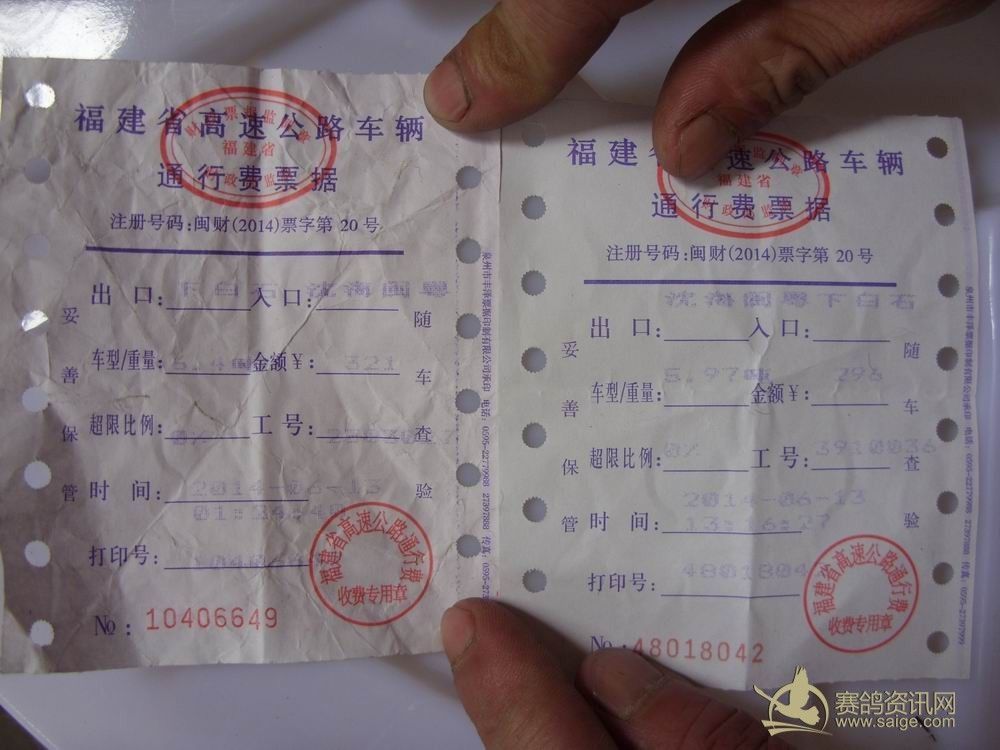 福建省高速公路车辆
通行费票据
福建省
注册号码:闽财(2014)票字第 20 号
出 口: 下白石 入口: 沈海闽粤
车型/重量: 金额￥: 321
超限比例: 0% 工号:
时 间: 2014-06-13
打印号:
№: 10406649
妥善保管
随车查验
福建省高速公路通行费
收费专用章
福建省高速公路车辆
通行费票据
福建省
注册号码:闽财(2014)票字第 20 号
沈海闽粤下白石
出 口: 入口:
车型/重量: 5.97 金额￥: 296
超限比例: 0% 工号: 3910036
2014-06-13
时 间: 13:16:27
打印号:
№:48018042
妥善保管
随车查验
福建省高速公路通行费
收费专用章
赛鸽资讯网
www.saige.com